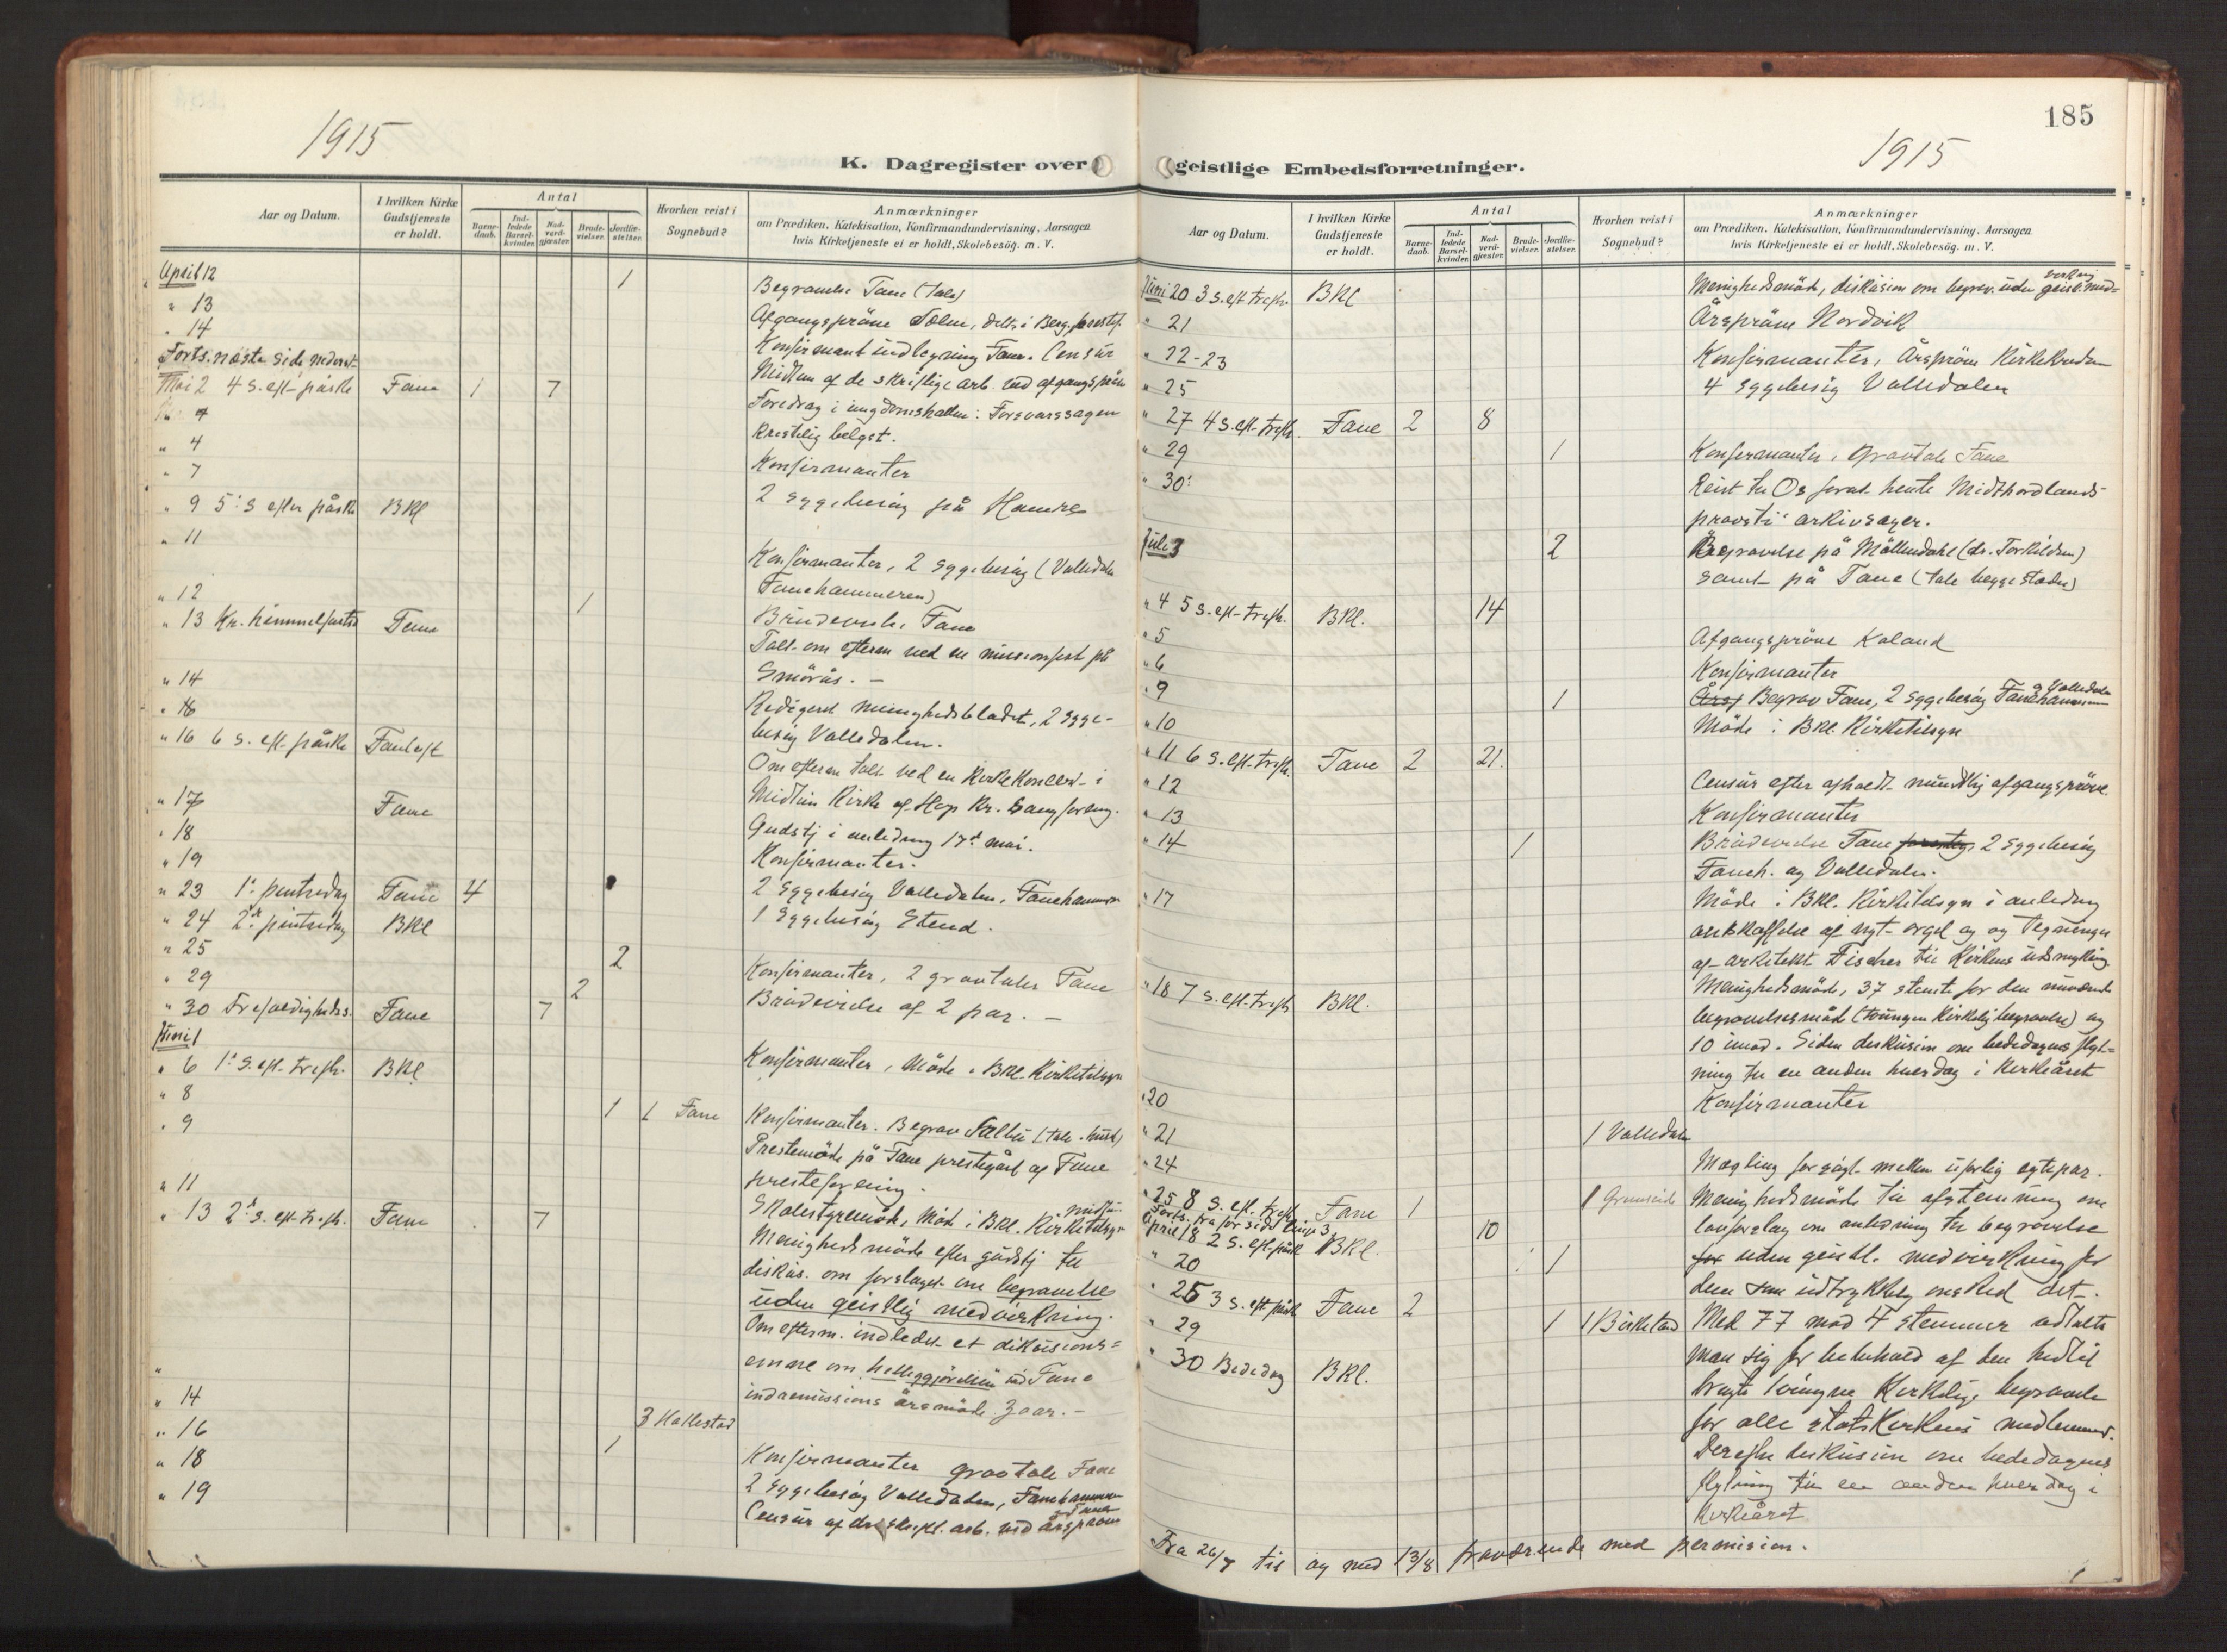 1915
K. Dagregister over
Aar og Datum.
I hvilken Kirke Gudstjeneste er holdt.
Antal
Barnedaab.
Indledede Barselkvinder.
Nadverdgjæster.
Brudevielser.
Jordfæstelser.
Hvorhen reist i Sognebud?
Anmærkninger
om Prædiken, Katekisation, Konfirmandundervisning, Aarsagen
hvis Kirketjeneste ei er holdt, Skolebesög. m. V.
April 12 1 Begravelse Fane (tale)
" 13 Afgangspröve
" 14 Konfirmantindlegning Fane. Censur
Forts. næste side nederst
Mai 2 4 s. eft påske Fane 1 7 af de skriftlige arb. ved afgangspröve
" 4 Foredrag i ungdomshallen: Forsvarssagen
" 4 Kristelig belyst.
" 7 Konfirmanter
" 9 5. s efter påske BKl 2 sygebesög på
" 11 Konfirmanter, 2 sygebesög (Valledalen
" 12 1 Fanehammeren)
" 13 Kr. himmelfartsd Fane Brudevielse Fane
Talt om efterm ved en missionsfest på
" 14 Smörås. -
" 16 Redigeret menighedsbladet, 2 syge-
" 16 6 s. eft. påske besög Valledalen.
Om efterm talt ved en Kirkekoncert i
" 17 Fane Midtun Kirke af Hop Kr. Sangforeng.
" 18 Gudstj i anledning 17d mai.
" 19 Konfirmanter.
" 23 1. pintsedag Fane 4 2 sygebesög Valledalen, Fanehammer
" 24 2. pintsedag BKl 1 sygebesög Stend.
" 25 2
" 29 2 Konfirmanter, 2 gravtaler Fane
" 30 Trefoldigheds. Fane 7 Brudevielse af 2 par. -
Juni 1
" 6 1. s. eft. trefh. BKl Konfirmanter, Möde i BKl Kirketilsyn
" 8 1 1 Fane
" 9 Konfirmanter. Begrav
Prestemöde på Fane prestegård af Fane
" 11 presteforening.
" 13 2. s. eft. trefh. Fane 7 Skolestyremöde, Möde i BKl. Kirketilsyn
Menighedsmöde efter gudstj til
diskus. om forslaget om begravelse
uden geistlig medvirkning.
Om efterm. indledet et diskusions=
emne om helliggjörelsen ved Fane
" 14 indremissions årsmöde.
" 16 3 Hallestad
" 18 1 Konfirmanter gravtale Fane
" 19 2 sygebesög Valledalen, Fanehammer
Censur af de skriftl. arb. ved årspröve
185
1915
geistlige Embedsforretninger.
Aar og Datum.
I hvilken Kirke Gudstjeneste er holdt.
Antal
Barnedaab.
Indledede Barselkvinder.
Nadverdgjæster.
Brudevielser.
Jordfæstelser.
Hvorhen reist i Sognebud?
Anmærkninger
om Prædiken, Katekisation, Konfirmandundervisning, Aarsagen
hvis Kirketjeneste ei er holdt, Skolebesög. m. V.
Juni 20 3 s. eft trefh. BKl Menighedsmöde, diskusion om begrav. uden geistl. med= virkning
" 21 Årspröve Nordvik
" 22-23 Konfirmanter, Årspröve
" 25 4 sygebesög Valledalen
" 27 4 s. eft trefh. Fane 2 8
" 29 1 Konfirmanter, gravtale Fane
" 30: Reist til Os forat hente Midthordlands
provsti arkivsager.
Juli 3 2 Begravelse på Möllendahl (dr. Torkildsen)
samt på Fane (tale begge steder)
" 4 5 s. eft trefh. BKl. 14
" 5 Afgangspröve Kaland
" 6 Konfirmanter
" 9 1 Begrav Fane, 2 sygebesög Fanehammeren & Valledalen
" 10 Möde i BKl. Kirketilsyn
" 11 6 s. eft. trefh. Fane 2 21.
" 12 Censur efter afholdt mundtlig afgangspröve.
" 13 Konfirmanter
" 14 1 Brudevielse Fane 2 sygebesög
Faneh. og Valledalen.
" 17 Möde i BKl. Kirketilsyn i anledning
anskaffelse af nyt orgel og tegninger
af arkitekt Fischer til Kirkens udsmykning.
" 18 7 s. eft. trefh BKl. Menighedsmöde, 37 stemte for den nuværende
begravelsesmåde (tvungen kirkelig begravelse) og
10 imod. Siden diskusion om bededagens flyt=
ning til en anden hverdag i Kirkeåret
" 20 Konfirmanter
" 21 1 Valledalen
" 24 Mægling forsögt mellem uforlig egtepar.
" 25 8 s. eft. trefh. Fane 1 1 Menighedsmöde til afstemning om
Forts. fra for side linje 3
April 18 2 s. eft. påske BKl. 10 lovforslag om anledning til begravelse
" 20 1 uden geistl. medvirkning for
" 25 3 s. eft. påske Fane 2 dem som udtrykkelig önsked det.
" 29 1 1 Birkeland Med 77 mod 4 stemmer udtalte
" 30 Bededag BKl. man sig for bibehold af den hidtil
brugte tvungne Kirkelige begravelse
for alle statskirkens medlemmer.
Derefter diskusion om bededagens
flytning til en anden hverdag i
Kirkeåret
Fra 26/7 til og med 13/8 fraværende med permision.